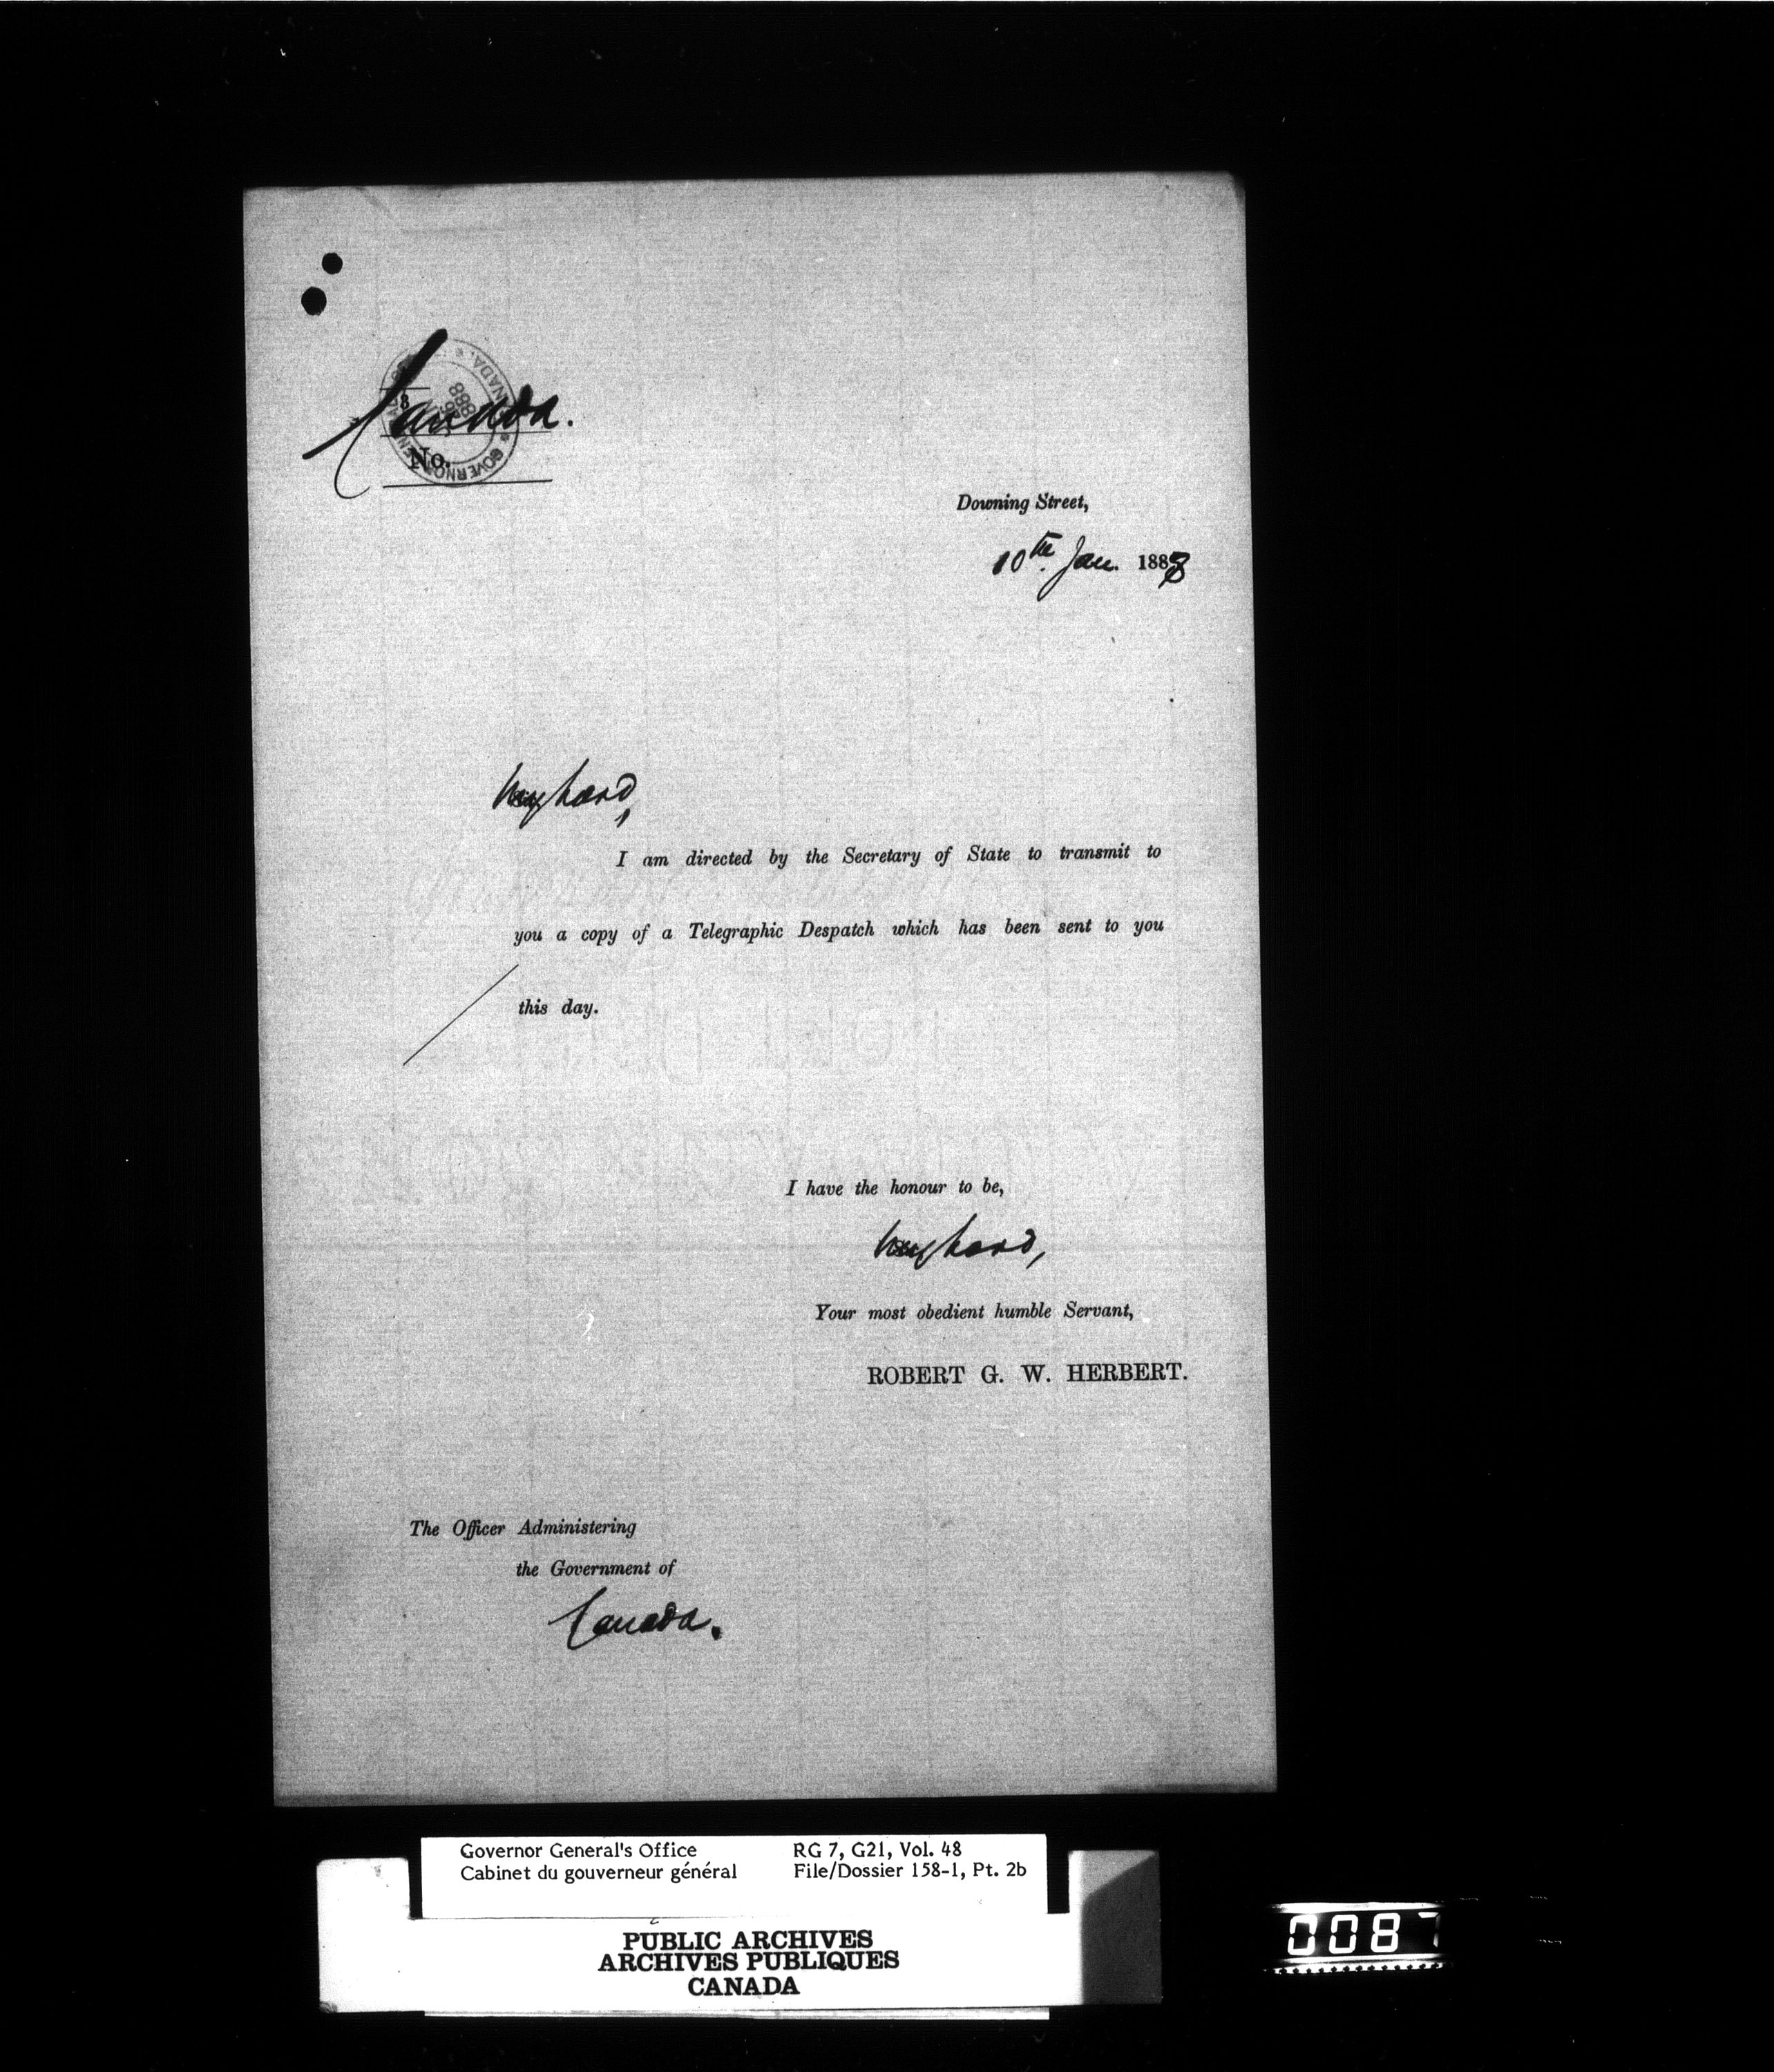 Canada.
No.
GOVERNO
CANADA.
Downing Street,
10th. Jan. 1888
My Lord,
I am directed by the Secretary of State to transmit to
you a copy of a Telegraphic Despatch which has been sent to you
this day.
I have the honour to be,
My Lord,
Your most obedient humble Servant,
ROBERT G. W. HERBERT.
The Officer Administering
the Government of
Canada.
Governor General's Office RG 7, G21, Vol. 48
Cabinet du gouverneur général File/Dossier 158-1, Pt. 2b
PUBLIC ARCHIVES
ARCHIVES PUBLIQUES
CANADA
0087